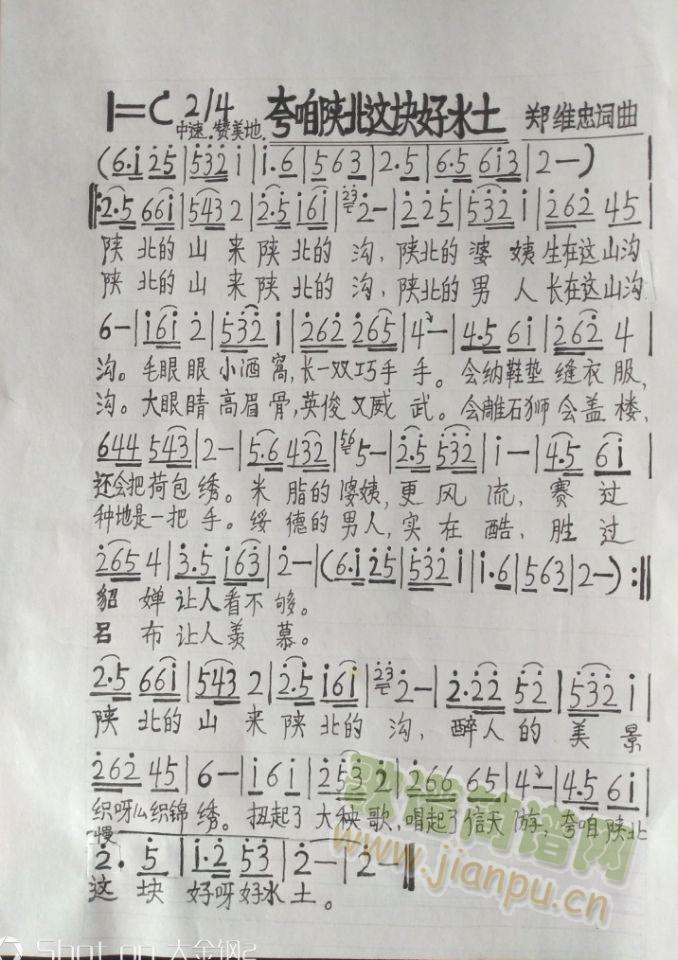 1=C 2/4 夸咱陕北这块好水土 郑维忠词曲
中速.赞美地.
(6·i 25|532 i|i·6|563|2·5|6·5 6i3|2—)|
‖:2·5 66i|543 2|2·5 i6i|23 2—|225|532 i|262 45|
陕北的山来陕北的沟,陕北的婆姨生在这山沟
陕北的山来陕北的沟,陕北的男人长在这山沟
6—|i6i 2|532 i|262 265|4—|4·5 6i|262 4|
沟。毛眼眼小酒窝,长一双巧手手。会纳鞋垫缝衣服,
沟。大眼睛高眉骨,英俊又威武。会雕石狮会盖楼,
644 543|2—|5·6 432|56 5—|2·5 532|i—|4·5 6i|
还会把荷包绣。米脂的婆姨,更风流,赛过
种地是一把手。绥德的男人,实在酷,胜过
265 4|3·5 i63|2—|(6·i 25|532 i|i·6|563|2—):‖
貂婵让人看不够。
吕布让人羡慕。
2·5 66i|543 2|2·5 i6i|23 2—|2·22 52|532 i|
陕北的山来陕北的沟,醉人的美景
262 45|6—|i6i|253 2|266 65|4—|4·5 6i|
织呀么织锦绣。扭起了大秧歌,唱起了信天游,夸咱陕北
慢
2· 5|i·2 53|2—|2—‖
这块好呀好水土。
www.jianpu.cn
Shot on 大金钢2